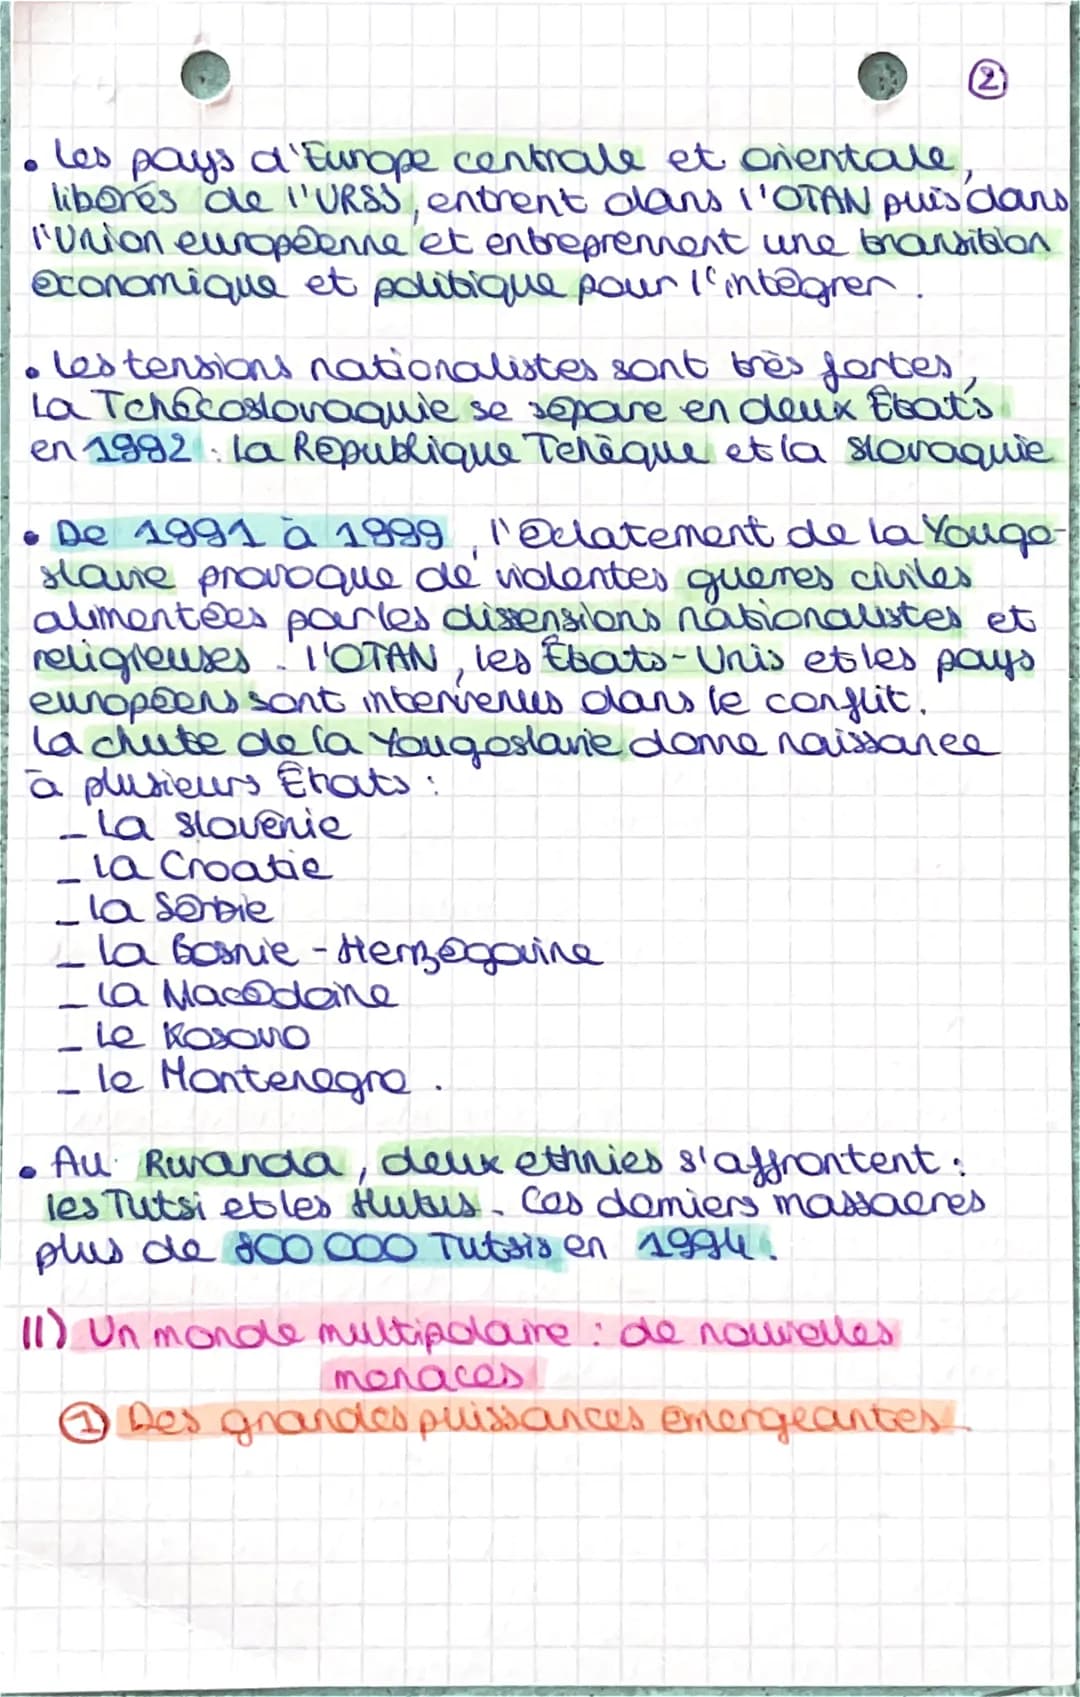 ②
• Les pays d'Europe centrale et orientale,
libérés de l'URSS, entrent dans l'OTAN puis dans
l'Union européenne et entreprennent une transition
économique et politique pour l'intégrer.
• Les tensions nationalistes sont très fortes,
La Tchécoslovaquie se sépare en deux États
en 1992 : la République Tchèque et la Slovaquie
• De 1991 à 1999, l'éclatement de la Yougo-
slavie provoque de violentes guerres civiles
alimentées par les dissensions nationalistes et
religieuses. l'OTAN, les États-Unis et les pays
européens sont intervenus dans le conflit.
La chute de la Yougoslavie donne naissance
à plusieurs États :
- La Slovénie
- la Croatie
- la Serbie
- la Bosnie - Herzégovine
- la Macédoine
- Le Kosovo
- le Monténégro.
• Au Rwanda, deux ethnies s'affrontent :
les Tutsi et les Hutus. Ces derniers massacres
plus de 800 000 Tutsis en 1994.
II) Un monde multipolaire : de nouvelles
menaces
① Des grandes puissances émergeantes.